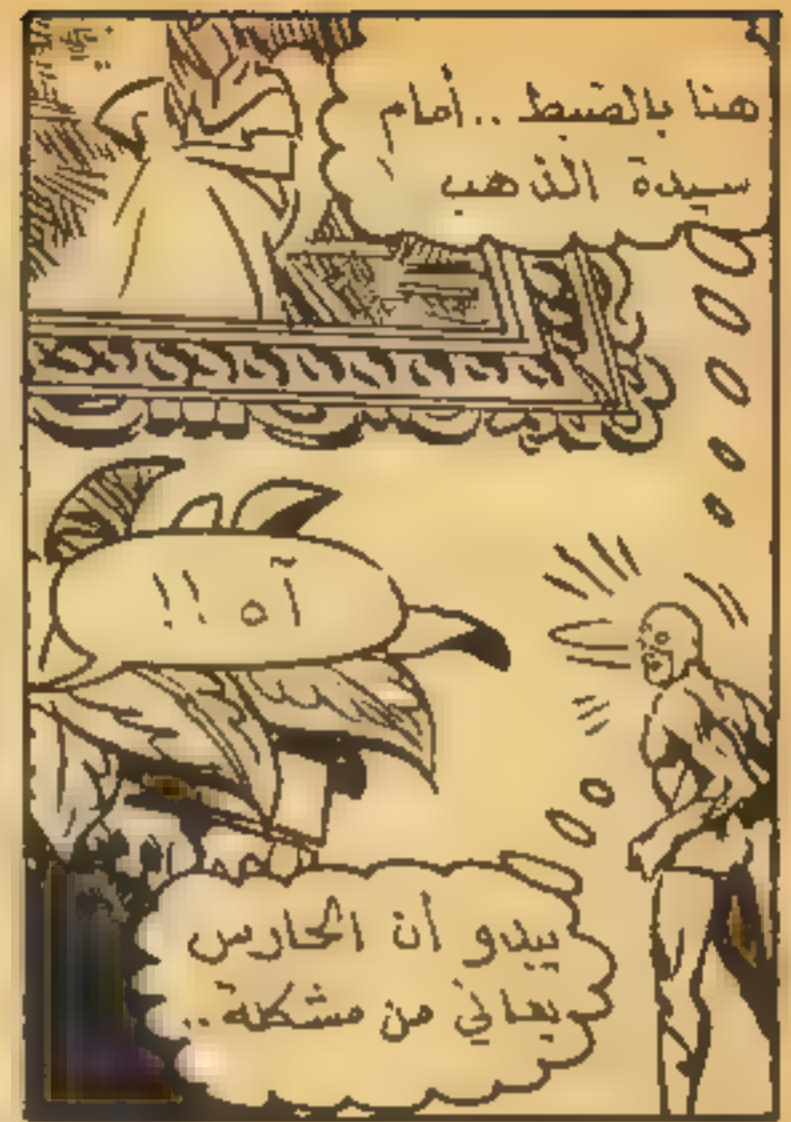 هنا بالضبط ..أمام
سيدة الذهب
آه !! !!
يبدو أن الحارس
يعاني من مشكلة..